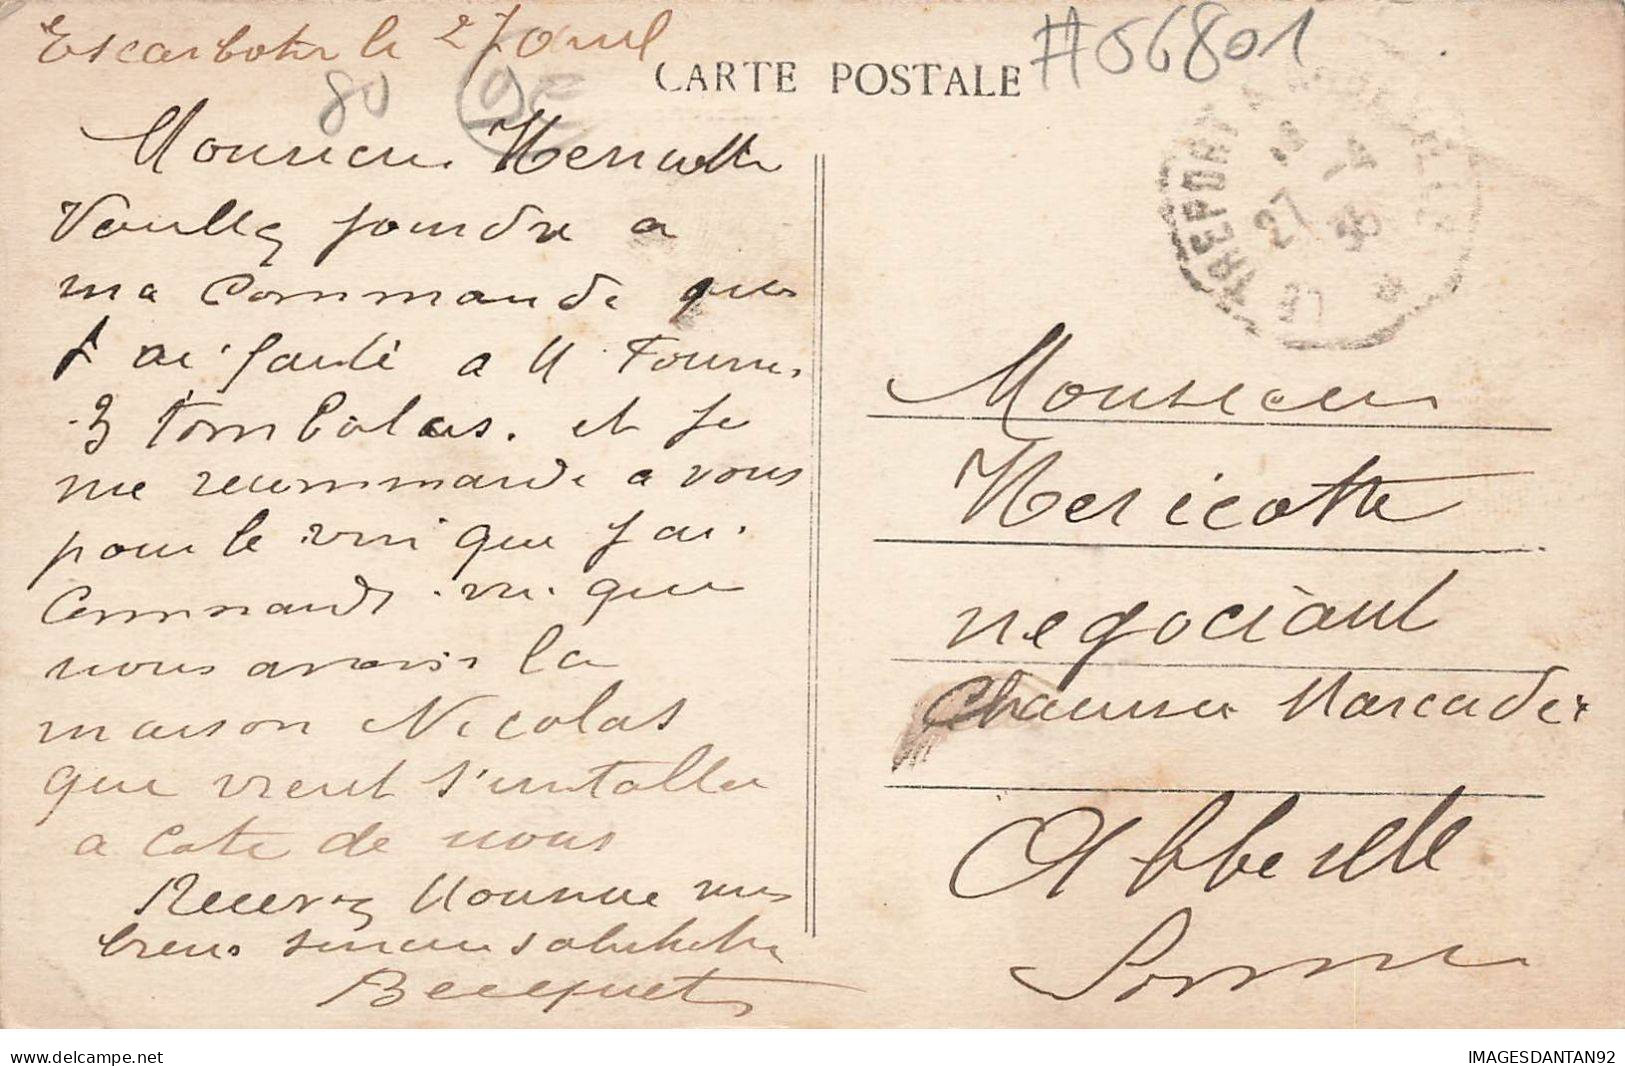 Escarbotin le 27 Avril
80
CARTE POSTALE
#56801
TREPORT
27 36
Monsieur Hericotte
Veuillez joindre a
ma Commande que
J ai faite a M Fourni.
3 tombolas. et je
me recommande a vous
pour le vin que j'ai
Commande vu que
nous avons la
maison Nicolas
que vient s'installer
a cote de nous
Recevez Monsieur mes
bien sinceres salutations
Becquet
Monsieur
Hericotte
negociant
Chaussee Marcadé
Abbeville
Somme
delcampe.net
IMAGESDANTAN92